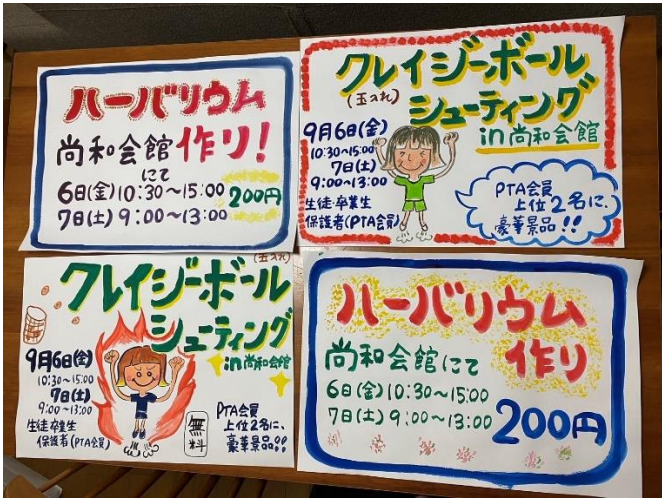 ハーバリウム
尚和会館作り!
にて
6日(金)10:30~15:00 200円
7日(土)9:00~13:00
クレイジーボール
(玉入れ)
シューティング
in尚和会館
9月6日(金)
10:30~15:00
7日(土)
9:00~13:00
生徒・卒業生
保護者(PTA会員)
PTA会員
上位2名に、
豪華景品!!
(玉入れ)
クレイジーボール
シューティング
in尚和会館
9月6日(金)
10:30~15:00
7日(土)
9:00~13:00
生徒・卒業生
保護者(PTA会員)
無料
PTA会員
上位2名に、
豪華景品!!
ハーバリウム
作り
尚和会館にて
6日(金)10:30~15:00
7日(土)9:00~13:00
200円